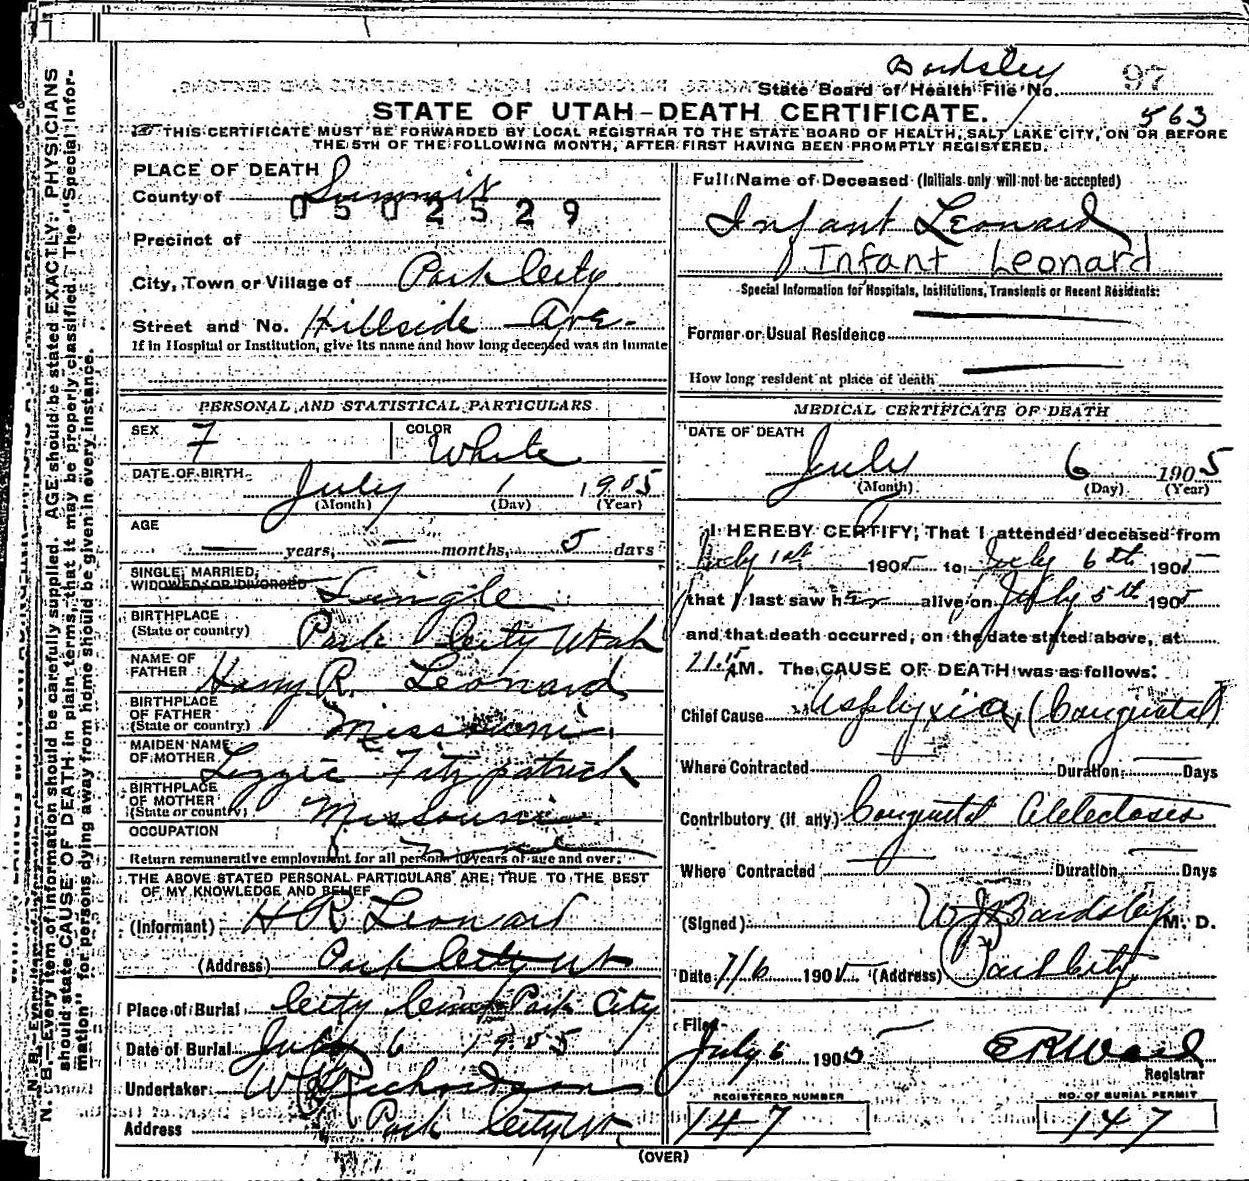 Bardsley
State Board of Health File No. 97
STATE OF UTAH-DEATH CERTIFICATE.
563
THIS CERTIFICATE MUST BE FORWARDED BY LOCAL REGISTRAR TO THE STATE BOARD OF HEALTH, SALT LAKE CITY, ON OR BEFORE
THE 5TH OF THE FOLLOWING MONTH, AFTER FIRST HAVING BEEN PROMPTLY REGISTERED.
PLACE OF DEATH
County of Summit
0502529
Precinct of
City, Town or Village of Park City
Street and No. Hillside Ave.
If in Hospital or Institution, give its name and how long deceased was an inmate
Full Name of Deceased (Initials only will not be accepted)
Infant Leonard
Infant Leonard
Special Information for Hospitals, Institutions, Transients or Recent Residents:
Former or Usual Residence
How long resident at place of death
PERSONAL AND STATISTICAL PARTICULARS
SEX F COLOR White
DATE OF BIRTH July 1 1905
(Month) (Day) (Year)
AGE
— years, — months, 5 days
SINGLE, MARRIED,
WIDOWED, OR DIVORCED Single
BIRTHPLACE
(State or country) Park City Utah
NAME OF
FATHER Harry R. Leonard
BIRTHPLACE
OF FATHER
(State or country) Missouri
MAIDEN NAME
OF MOTHER Lizzie Fitzpatrick
BIRTHPLACE
OF MOTHER
(State or country) Missouri
OCCUPATION
Return remunerative employment for all persons 10 years of age and over.
THE ABOVE STATED PERSONAL PARTICULARS ARE TRUE TO THE BEST
OF MY KNOWLEDGE AND BELIEF
(Informant) H R Leonard
(Address) Park City Ut
Place of Burial City Cem Park City
Date of Burial July 6 1905
Undertaker W Richardson
Address Park City Ut
MEDICAL CERTIFICATE OF DEATH
DATE OF DEATH
July 6 1905
(Month) (Day) (Year)
I HEREBY CERTIFY, That I attended deceased from
July 1st 1905 to July 6th 1905
that I last saw her alive on July 5th 1905
and that death occurred, on the date stated above, at
M. The CAUSE OF DEATH was as follows:
Chief Cause Asphyxia, (Congenital)
Where Contracted Duration Days
Contributory (if any) Congenital Atelectasis
Where Contracted Duration Days
(Signed) W J Bardsley M. D.
Date 7/6 1905 (Address) Park City
Filed
July 6 1905
Registrar
REGISTERED NUMBER
147
NO. OF BURIAL PERMIT
147
(OVER)
N. B.—Every item of information should be carefully supplied. AGE should be stated EXACTLY. PHYSICIANS
should state CAUSE OF DEATH in plain terms, that it may be properly classified. The "Special Infor-
mation" for persons dying away from home should be given in every instance.